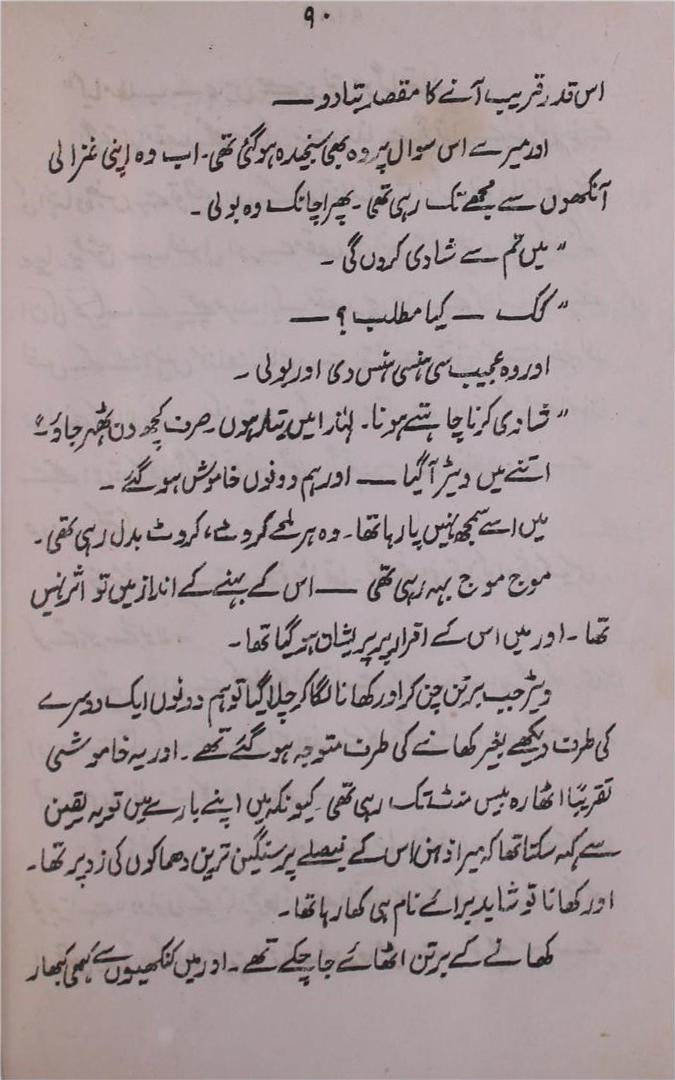 ۹۰
اس قدر قریب آنے کا مقصد بتا دو ــــ
اور میرے اس سوال پر وہ بھی سنجیدہ ہو گئی تھی۔ اب وہ اپنی غزالی
آنکھوں سے مجھے تک رہی تھی۔ پھر اچانک وہ بولی۔
”میں تم سے شادی کروں گی۔
”کک ــــ کیا مطلب؟ ــــ
اور وہ عجیب سی ہنسی ہنس دی اور بولی۔
”شادی کرنا چاہتے ہو نا۔ لہٰذا میں تیار ہوں۔ صرف کچھ دن ٹھہر جاؤ۔“
اتنے میں ویٹر آ گیا ــــ اور ہم دونوں خاموش ہو گئے۔
میں اسے سمجھ نہیں پا رہا تھا۔ وہ ہر لمحے کروٹ، کروٹ بدل رہی تھی۔
موج موج بہہ رہی تھی ــــ اس کے بہنے کے انداز میں تو اثر نہیں
تھا۔ اور میں اس کے اقرار پر پریشان ہو گیا تھا۔
ویٹر جب برتن چن کر اور کھانا لگا کر چلا گیا تو ہم دونوں ایک دوسرے
کی طرف دیکھے بغیر کھانے کی طرف متوجہ ہو گئے تھے۔ اور یہ خاموشی
تقریباً اٹھارہ بیس منٹ تک رہی تھی۔ کیونکہ میں اپنے بارے میں تو یہ یقین
سے کہہ سکتا تھا کہ میرا ذہن اس کے فیصلے پر سنگین ترین دھماکوں کی زد پر تھا۔
اور کھانا تو شاید برائے نام ہی کھا رہا تھا۔
کھانے کے برتن اٹھائے جا چکے تھے۔ اور میں کنکھیوں سے کبھی کبھار